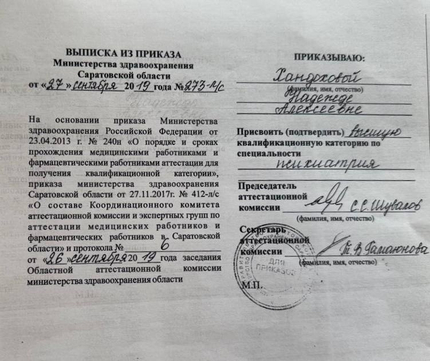 ВЫПИСКА ИЗ ПРИКАЗА
Министерства здравоохранения
Саратовской области
от «27» сентября 2019 года №273-л/с
На основании приказа Министерства
здравоохранения Российской Федерации от
23.04.2013 г. № 240н «О порядке и сроках
прохождения медицинскими работниками и
фармацевтическими работниками аттестации для
получения квалификационной категории»,
приказа министерства здравоохранения
Саратовской области от 27.11.2017г. № 412-л/с
«О составе Координационного комитета
аттестационной комиссии и экспертных групп по
аттестации медицинских работников и
фармацевтических работников в Саратовской
области» и протокола № 6
от «26» сентября 2019 года заседания
Областной аттестационной комиссии
министерства здравоохранения области
ПРИКАЗЫВАЮ:
Хандоховой
(фамилия, имя, отчество)
Надежде
Алексеевне
Присвоить (подтвердить) высшую
квалификационную категорию по
специальности
психиатрия
Председатель
аттестационной
комиссии С.С. Шувалов
(фамилия, имя, отчество)
Секретарь
аттестационной
комиссии Т.В. Гамаюнова
(фамилия, имя, отчество)
ДЛЯ
ПРИКАЗОВ
М.П.